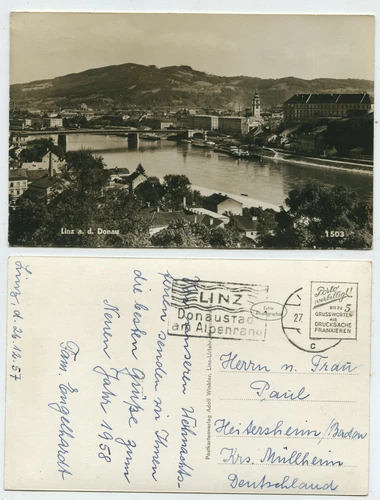 Linz a. d. Donau
1503
Linz d. 26.12.57
Aus unseren Weihnachts-
ferien senden wir Ihnen
die besten Grüße zum
Neuen Jahr 1958
Fam. Engelhardt
LINZ
Donaustadt
am Alpenrand
Porto
verbilligt!
BIS ZU 5
GRUSSWORTEN
ALS
DRUCKSACHE
FRANKIEREN
27.
c
Postkartenverlag Adolf Winkler, Linz-Urfahr
Herrn u. Frau
Paul
Heitersheim/Baden
Krs. Müllheim
Deutschland